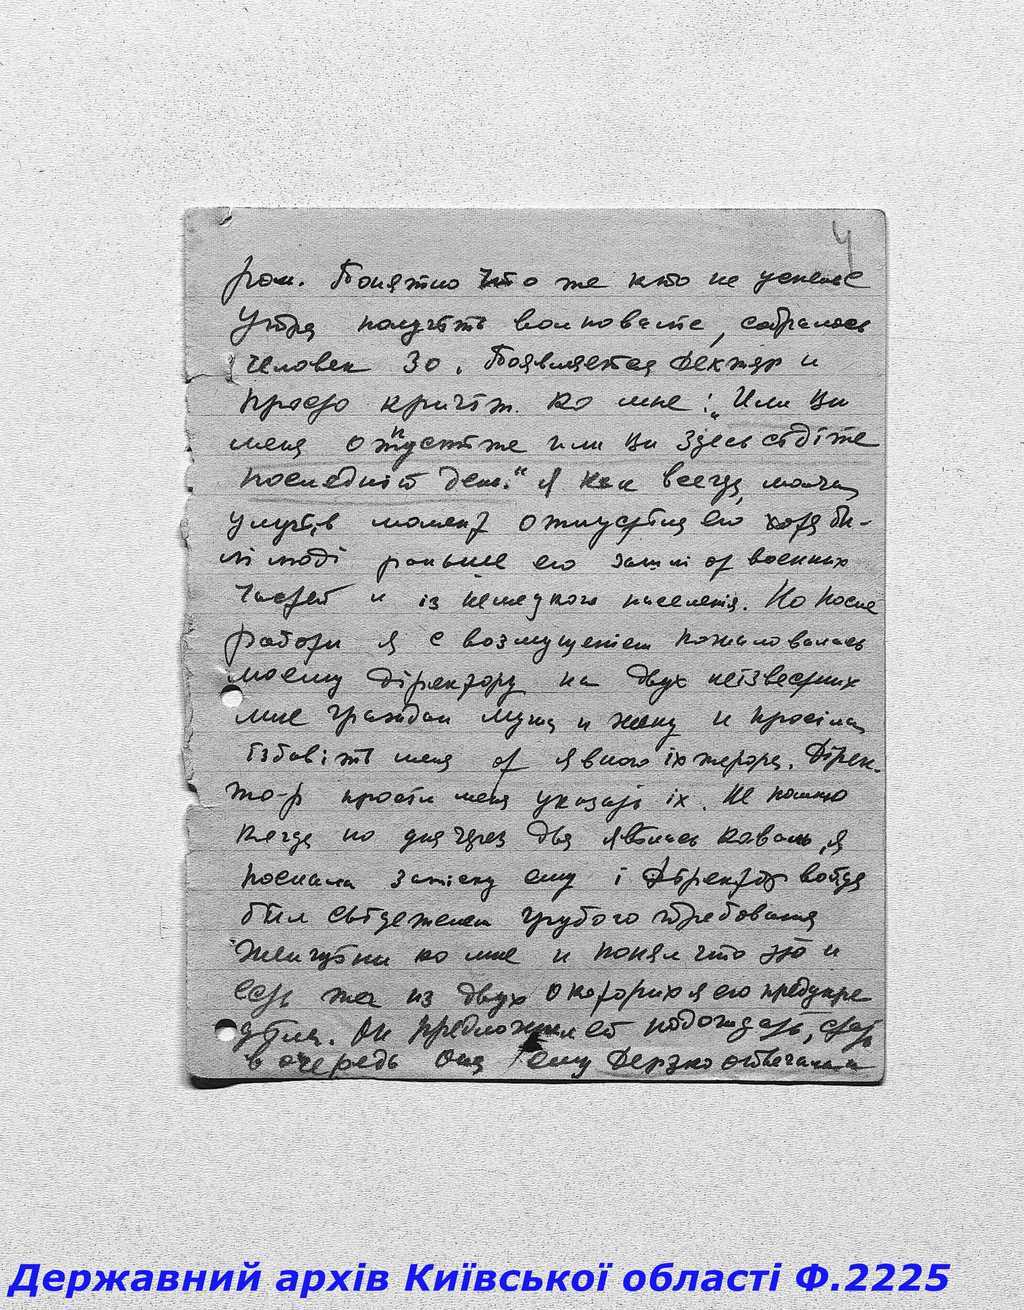 4
ром. Понятно что же кто не успели
утра получить волновалис, собралось
человек 30. Появляется Дехтяр и
просто кричіт ко мне: „Или ви
меня отпустите или ви здесь сідіте
последний день." Я как всегда, молча
улучів момент отпустіла его хотя би-
лі люді раньше его от военних
частей и із немецкого населенія. Но после
работи я с возмущеніем пожаловалась
моему діректору на двух неізвестних
мне граждан мужа и жену и просіла
ізбавіть меня от явного іх терора. Дірек-
то-р просил меня указать іх. Не помню
когда но дня через два явилась Коваль, я
послала запіску ему і Діректор войдя
бил свідетелем грубого требования
Женщіни ко мне и понял что это и
есть та из двух о которих я его предупре
діла. Он предложил ей подождать, стать
в очередь она ему дерзко отвечала
Державний архів Київської області Ф.2225